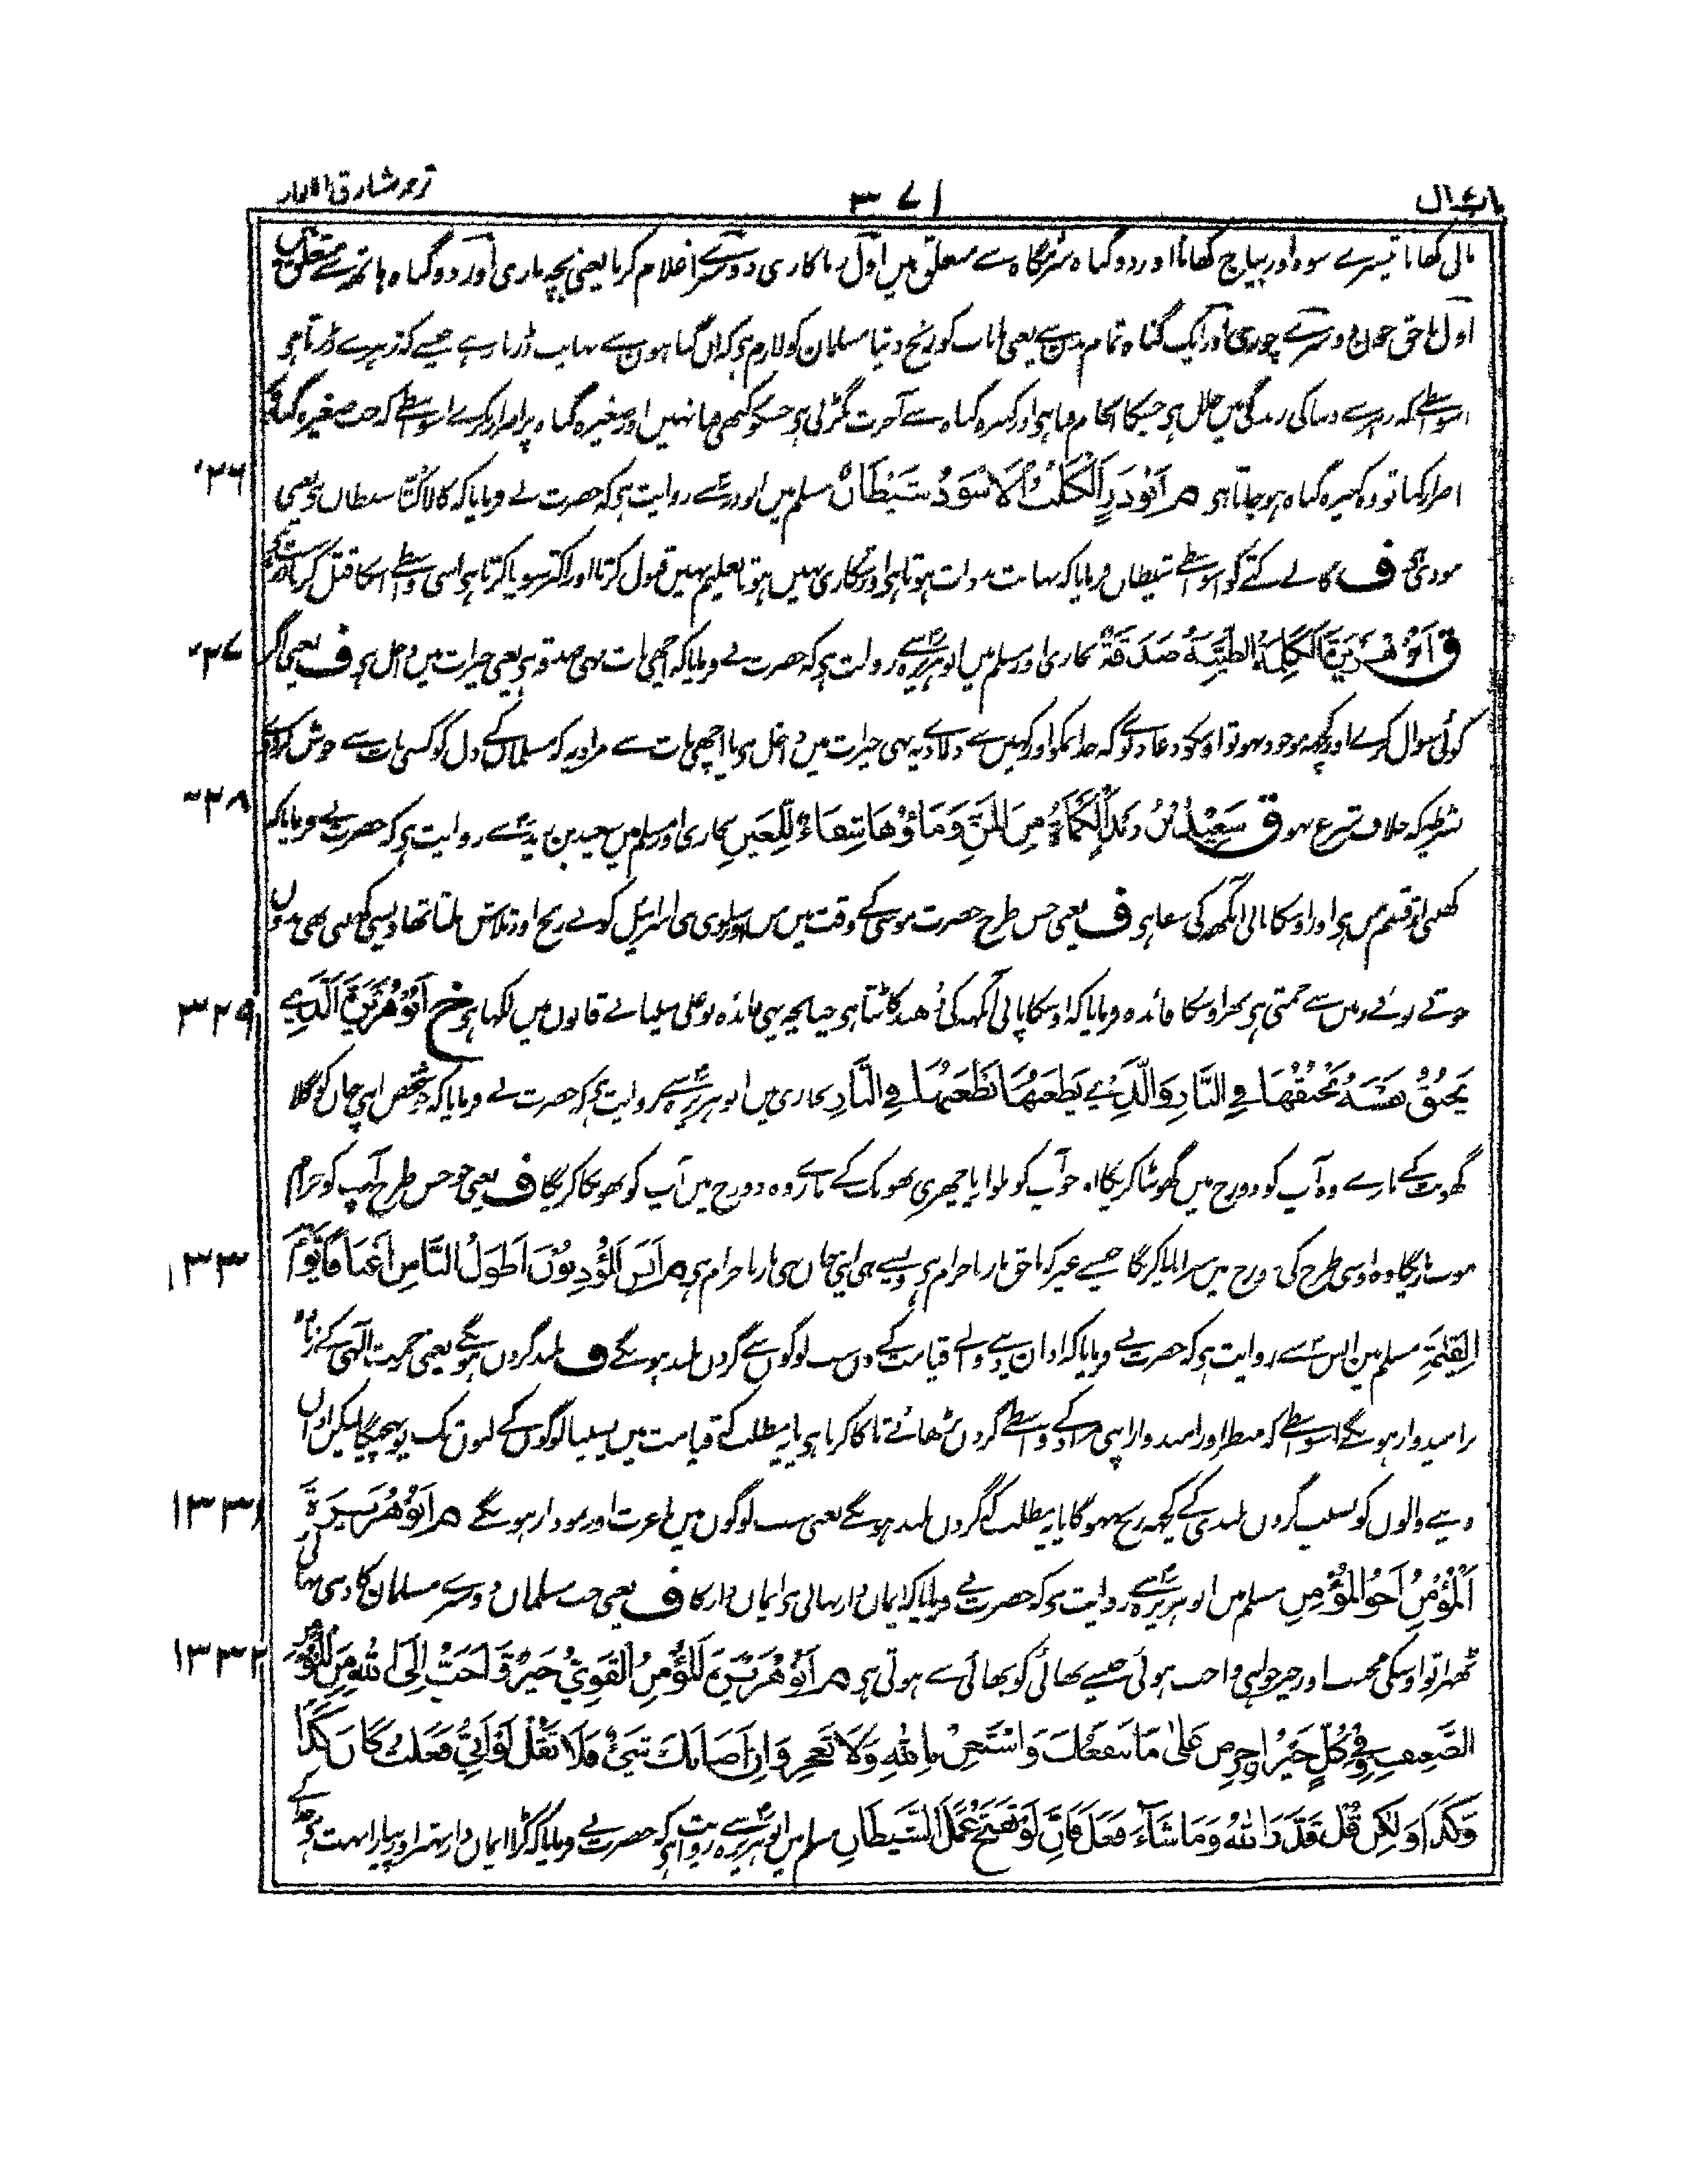 ۳۷۱
مالی کھانا تیسرے سود اور بیاج کھانا اور دو گناہ شرمگاہ سے متعلق ہیں اول زناکاری دوسرے اغلام کرنا یعنی بچہ بازی اور دو گناہ ہاتھ سے متعلق ہیں
اول ناحق خون دوسرے چوری اور ایک گناہ تمام بدن سے یعنی ماں باپ کو رنج دینا مسلمان کو لازم ہی کہ ان گناہوں سے نہایت ڈرتا رہے جیسے کہ زہر سے ڈرتا ہو
اسواسطے کہ زہر سے دنیا کی زندگی میں خلل ہی جسکا انجام فنا ہی اور کبیرہ گناہ سے آخرت بگڑتی ہی جسکو کبھی فنا نہیں اور صغیرہ گناہ پر اصرار نکرے اسواسطے کہ جب صغیرہ گناہ
اصرار کیا تو وہ کبیرہ گناہ ہو جاتا ہی م اَبُوْ ذَرٍّ اَلْكَلْبُ الْاَسْوَدُ شَيْطَانٌ مسلم میں ابوذر سے روایت ہی کہ حضرت نے فرمایا کہ کالا کتا شیطان ہی یعنی
موذی ہی ف کالے کتے کو اسواسطے شیطان فرمایا کہ نہایت بدذات ہوتا ہی اور شکاری نہیں ہوتا تعلیم نہیں قبول کرتا اور اکثر سویا کرتا ہی اسی واسطے اسکا قتل کرنا
ق اَبُوْ هُرَيْرَةَ اَلْكَلِمَةُ الطَّيِّبَةُ صَدَقَةٌ بخاری اور مسلم میں ابوہریرہ سے روایت ہی کہ حضرت نے فرمایا کہ اچھی بات بھی صدقہ ہی یعنی خیرات میں داخل ہی ف یعنی اگر
کوئی سوال کرے اور کچھ موجود نہو تو اوسکو دعا دے کہ خدا تمکو اور کہیں سے دلادے یہ بھی خیرات میں داخل ہی یا اچھی بات سے مراد یہ کہ مسلمان کے دل کو کسی بات سے خوش کردے
بشرطیکہ خلاف شرع نہو ق سَعِيْدُ بْنُ زَيْدٍ اَلْكَمْاَةُ مِنَ الْمَنِّ وَمَاؤُهَا شِفَاءٌ لِّلْعَيْنِ بخاری اور مسلم میں سعید بن زید سے روایت ہی کہ حضرت نے فرمایا کہ
کھنبی از قسم من ہی اور اوسکا پانی آنکھ کی شفا ہی ف یعنی جس طرح حضرت موسی کے وقت میں من اور سلوی بنی اسرائیل کو بے رنج اور تلاش ملتا تھا ویسی کھنبی بھی بدون
جوتے بوئے زمین سے جمتی ہی پھر اوسکا فائدہ فرمایا کہ اوسکا پانی آنکھ کی دھند کاٹتا ہی چنانچہ یہی فائدہ بوعلی سینا نے قانون میں لکھا ہی خ اَبُوْ هُرَيْرَةَ اَلَّذِيْ
يَخْنُقُ نَفْسَهُ يَخْنُقُهَا فِي النَّارِ وَالَّذِيْ يَطْعَنُهَا يَطْعَنُهَا فِي النَّارِ بخاری میں ابوہریرہ سے روایت ہی کہ حضرت نے فرمایا کہ جو شخص اپنی جان کو گلا
گھونٹ کے مارے وہ آپ کو دوزخ میں گھونٹا کریگا اور جو آپ کو تلوار یا چھری بھونک کے مارے وہ دوزخ میں آپ کو بھونکا کریگا ف یعنی جو جس طرح آپ کو حرام
موت ماریگا وہ اوسی طرح کی دوزخ میں سزا پایا کریگا جیسے غیر کو ناحق مارنا حرام ہی ویسے ہی اپنی جان بھی مارنا حرام ہی م اَنَسٌ اَلْمُؤَذِّنُوْنَ اَطْوَلُ النَّاسِ اَعْنَاقًا يَوْمَ
الْقِيٰمَةِ مسلم میں انس سے روایت ہی کہ حضرت نے فرمایا کہ اذان دینے والے قیامت کے دن سب لوگوں سے گردن بلند ہونگے ف بلند گردن ہونگے یعنی رحمت الٰہی کے
امیدوار ہونگے اسواسطے کہ منتظر اور امیدوار اپنی مراد کے واسطے گردن بڑھائے تاکا کرتا ہی یا یہ مطلب کہ قیامت میں پسینا لوگوں کے لبوں تک پہونچیگا لیکن اذان
دینے والوں کو بسبب گردن بلندی کے کچھ رنج نہوگا یا یہ مطلب کہ گردن بلند ہونگے یعنی سب لوگوں میں باعزت اور نمودار ہونگے م اَبُوْ هُرَيْرَةَ
اَلْمُؤْمِنُ اَخُو الْمُؤْمِنِ مسلم میں ابوہریرہ سے روایت ہی کہ حضرت نے فرمایا کہ ایماندار بھائی ہی ایماندار کا ف یعنی جب مسلمان دوسرے مسلمان کا دینی بھائی
ٹھہرا تو اوسکی محبت اور خیرخواہی واجب ہوئی جیسے بھائی کو بھائی سے ہوتی ہی م اَبُوْ هُرَيْرَةَ اَلْمُؤْمِنُ الْقَوِيُّ خَيْرٌ وَّاَحَبُّ اِلَى اللهِ مِنَ الْمُؤْمِنِ
الضَّعِيْفِ وَفِيْ كُلٍّ خَيْرٌ اِحْرِصْ عَلٰى مَا يَنْفَعُكَ وَاسْتَعِنْ بِاللهِ وَلَا تَعْجِزْ وَاِنْ اَصَابَكَ شَيْءٌ فَلَا تَقُلْ لَوْ اَنِّيْ فَعَلْتُ كَانَ كَذَا
وَكَذَا وَلٰكِنْ قُلْ قَدَّرَ اللهُ وَمَا شَاءَ فَعَلَ فَاِنَّ لَوْ تَفْتَحُ عَمَلَ الشَّيْطَانِ مسلم میں ابوہریرہ سے روایت ہی کہ حضرت نے فرمایا کہ کڑا ایماندار بہتر اور پیارا بہت ہی
۱۳۳۱
۱۳۳۲